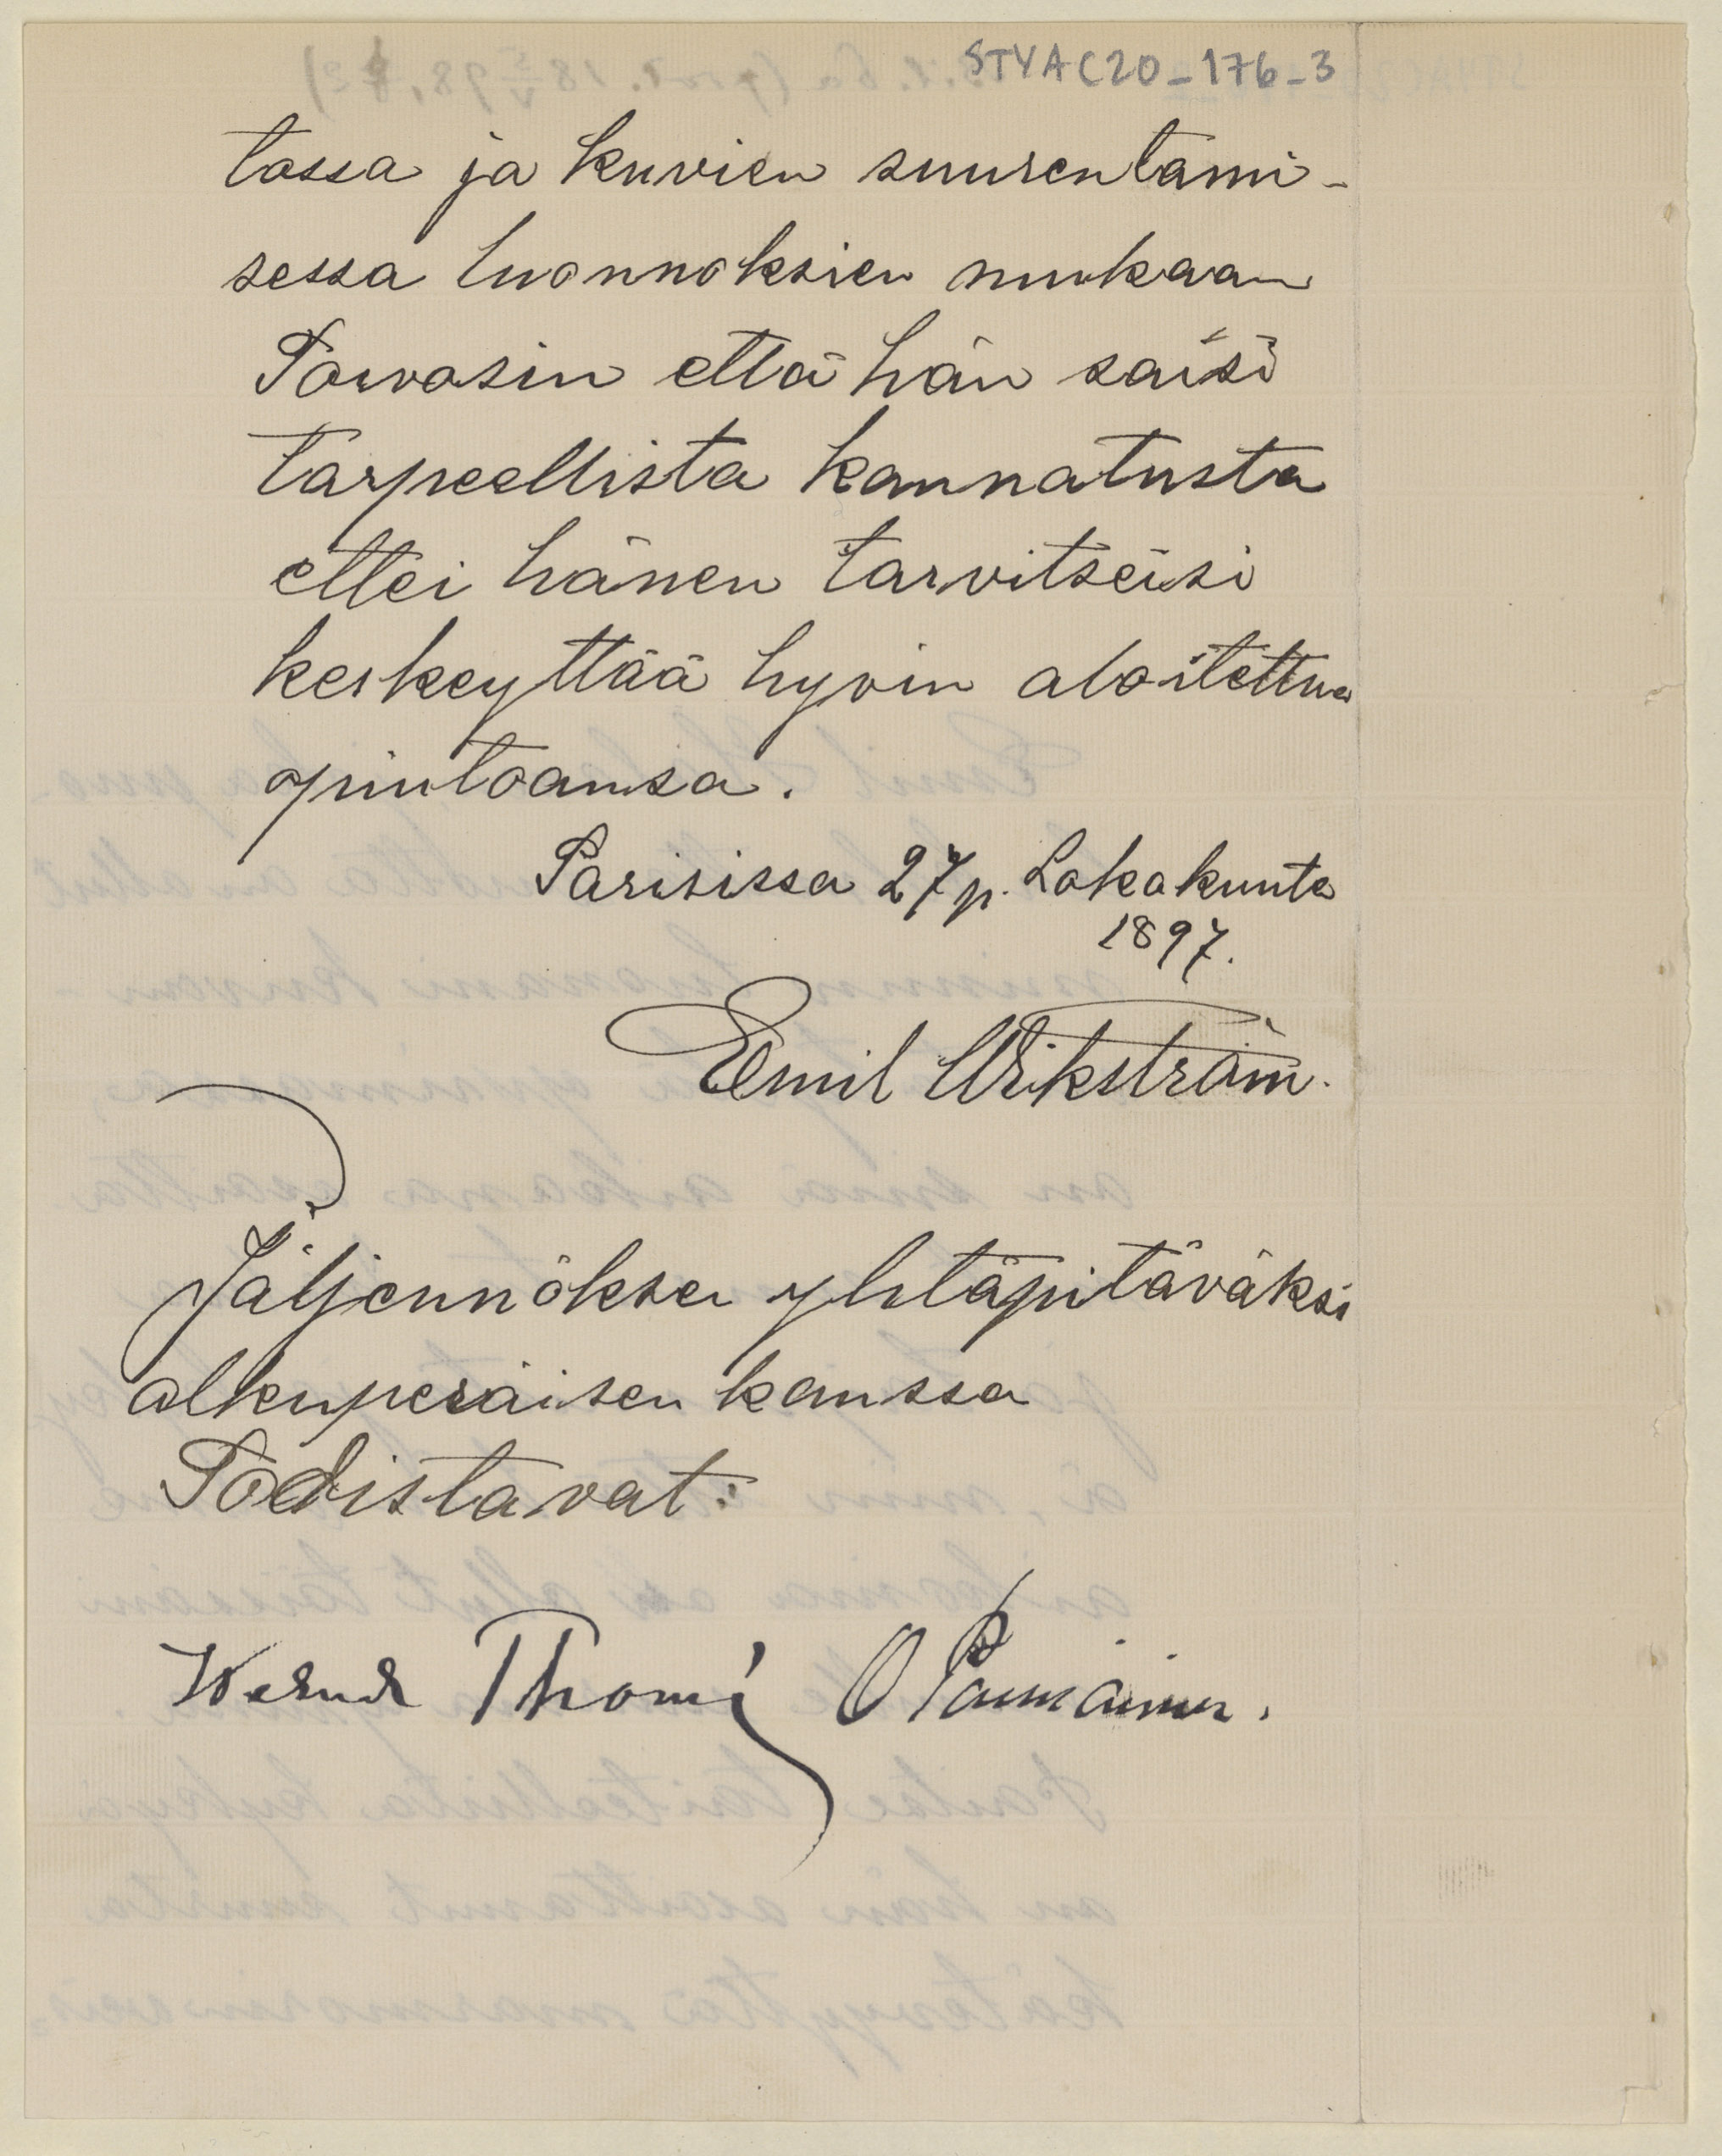 STYA C20_176_3
tossa ja kuvien suurentami-
sessa luonnoksien mukaan
Toivosin että hän saisi
tarpeellista kannatusta
ettei hänen tarvitseisi
keskeyttää hyvin aloitettua
opintoansa.
Parisissa 27 p. Lokakuuta
1897.
Emil Wikström.
Jäljennöksen yhtäpitäväksi
alkuperäisen kanssa
Todistavat:
Werner Thomé O Paunáinen.